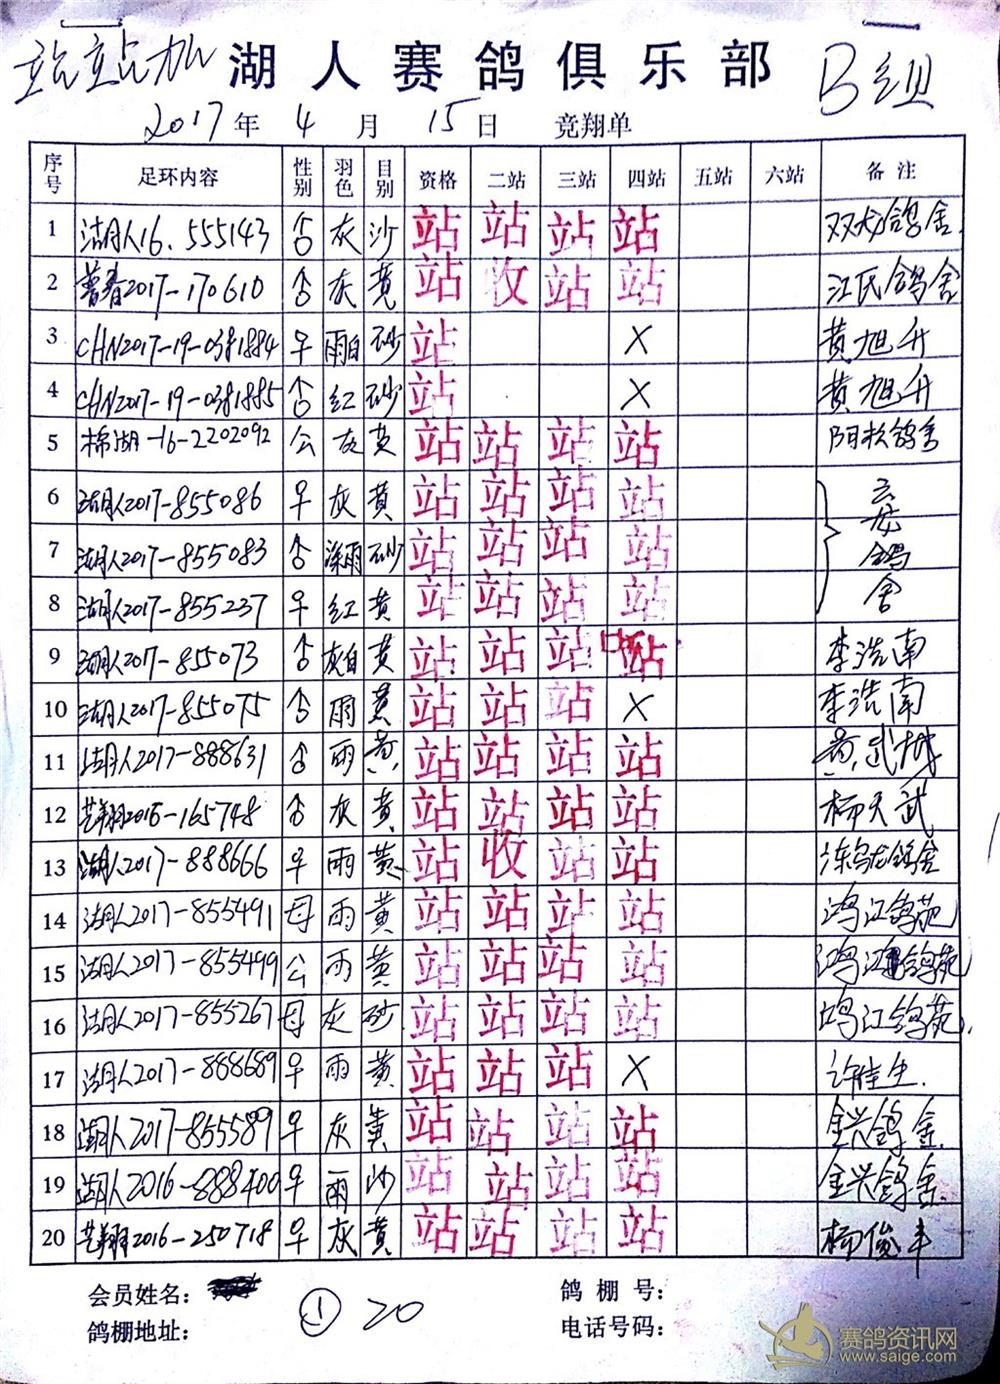 站站加 湖人赛鸽俱乐部 B组
2017年 4月 15日 竞翔单
序号 足环内容 性别 羽色 目别 资格 二站 三站 四站 五站 六站 备注
1 湖人16.555143 合 灰 沙 站 站 站 站 双龙鸽舍.
2 普春2017-170610 合 灰 黄 站 收 站 站 江氏鸽舍
3 CHN2017-19-0381884 早 雨白 砂 站 X 黄旭升
4 CHN2017-19-0381885 合 红 砂 站 X 黄旭升
5 棉湖-16-2202092 公 灰 黄 站 站 站 站 阳松鸽舍
6 湖人2017-855086 早 灰 黄 站 站 站 站 云龙鸽舍
7 湖人2017-855083 合 深雨 砂 站 站 站 站
8 湖人2017-855237 早 红 黄 站 站 站 站
9 湖人2017-855073 合 灰白 黄 站 站 站 站 李浩南
10 湖人2017-855075 合 雨 黄 站 站 站 X 李浩南
11 湖人2017-888631 合 雨 黄 站 站 站 站 黄武城
12 艺翔2016-165748 合 灰 黄 站 站 站 站 杨天武
13 湖人2017-888666 早 雨 黄 站 收 站 站 乌龙鸽舍
14 湖人2017-855491 母 雨 黄 站 站 站 站 鸿江鸽苑
15 湖人2017-855499 公 雨 黄 站 站 站 站 鸿江鸽苑
16 湖人2017-855267 母 灰 砂 站 站 站 站 鸿江鸽苑.
17 湖人2017-888689 早 雨 黄 站 站 站 X 许佳生.
18 湖人2017-855589 早 灰 黄 站 站 站 站 金兴鸽舍
19 湖人2016-888400 早 雨 沙 站 站 站 站 金兴鸽舍.
20 艺翔2016-250718 早 灰 黄 站 站 站 站 杨俊丰
会员姓名: 鸽棚号:
鸽棚地址: ① 20 电话号码:
赛鸽资讯网
www.saige.com